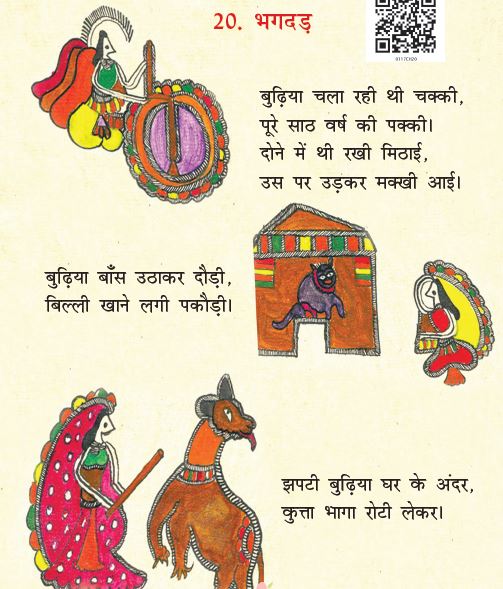 20. भगदड़
0117CH20
बुढ़िया चला रही थी चक्की,
पूरे साठ वर्ष की पक्की।
दोने में थी रखी मिठाई,
उस पर उड़कर मक्खी आई।
बुढ़िया बाँस उठाकर दौड़ी,
बिल्ली खाने लगी पकौड़ी।
झपटी बुढ़िया घर के अंदर,
कुत्ता भागा रोटी लेकर।